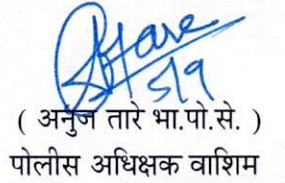 5/9
( अनुज तारे भा.पो.से. )
पोलीस अधिक्षक वाशिम